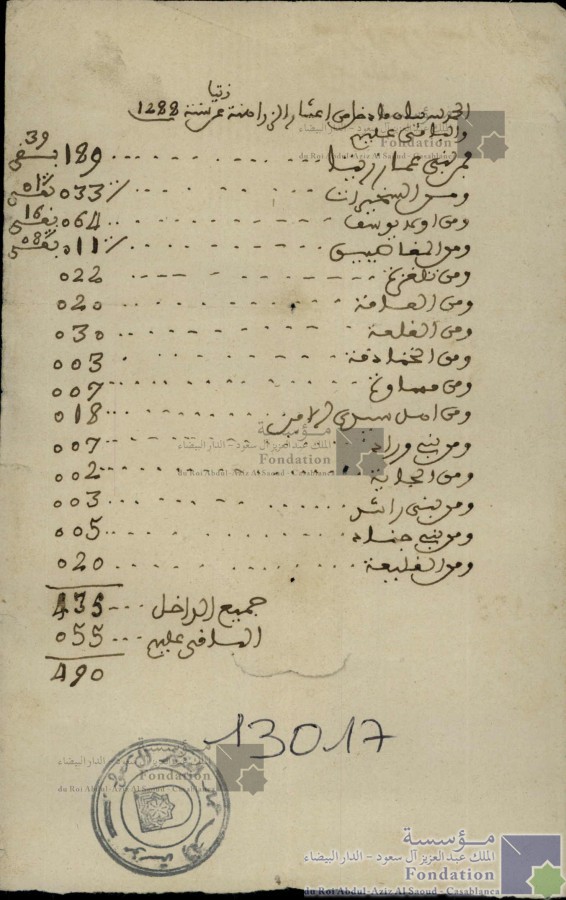 الحمد لله بيان ما دخل من اعشار الزرامنة عن سنة 1288
والباقي عليهم
فمن بني عمار زيتا 189 بقي 39
ومن السخيرات 033 بقي 01
ومن اولاد يوسف 064 بقي 16
ومن المغاصيين 011 بقي 08
ومن تلغزى 022
ومن العلافة 020
ومن القلعة 030
ومن الخنادقة 003
ومن مساوى 007
ومن اهل سيدي الامين 018
ومن بني ورا 007
ومن الجاية 002
ومن بني راشد 003
ومن بني جناد 005
ومن القليعة 020
جميع الداخل 435
الباقي عليهم 055
490
13017
مؤسسة
الملك عبد العزيز آل سعود - الدار البيضاء
Fondation
du Roi Abdul-Aziz Al Saoud - Casablanca